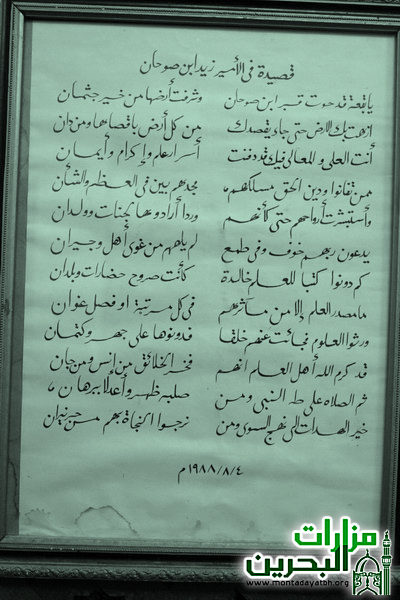 قصيدة في الأمير زيد ابن صوحان
يا بقعة قد حوت قبر ابن صوحان وشرفت أرضها من خير جثمان
ازهت بك الارض حتى جاء يقصدك من كل أرض باقصاها ومن دان
أنت العلى والمعالي فيك قد دفنت أسرار علم وإكرام وإيمان
ممن تفانوا ودين الحق مسلكهم مجدهم بين في العظم والشأن
وأستبشرت أرواحهم حتى كأنهم وردا أرادوا بها جنات وولدان
يدعون ربهم خوف وفي طمع لم يلههم من غوى أهل وجيران
كم دونوا كتبا للعلم خالدة كأنت صروح حضارات وبلدان
ما مصدر العلم إلا من مآثرهم في كل مرتبة او فصل عنوان
ورثوا العلوم فجائت عنهم خلقا فدونوها على جهر وكتمان
قد كرم الله أهل العلم انهم فخر الخلائق من إنس ومن جان
ثم الصلاه على طه النبي ومن صلبه ظهر وأعد
خير الهداة الى نهج السوى ومن نرجوا النجاة بهم من حر نيران
١٩٨٨/٨/٤ م
مزارات
البحرين
www.montadayatbh.org